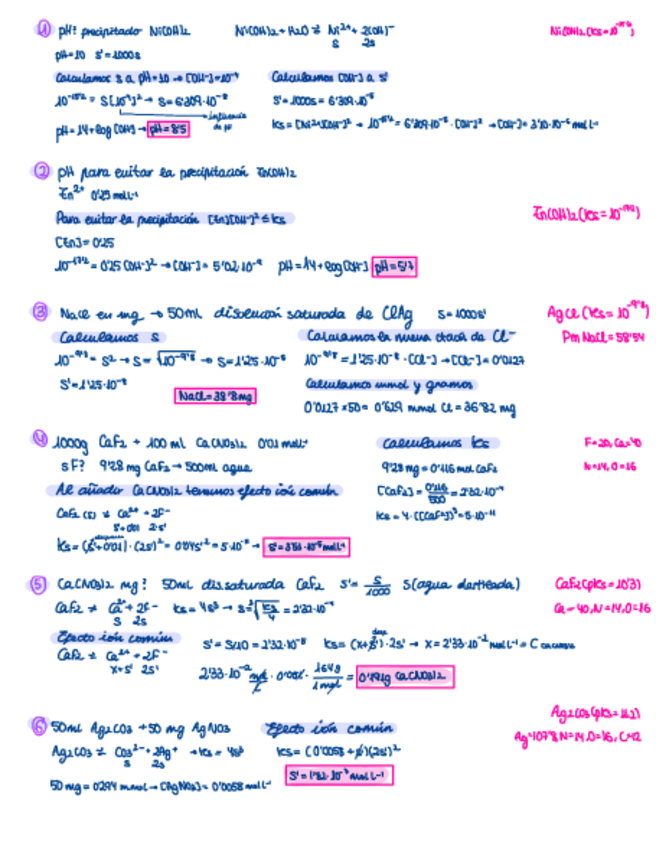 1) pH? precipitado Ni(OH)2 Ni(OH)2 + H2O ⇌ Ni2+ + 2(OH)- Ni(OH)2 (Ks=10^-15'2)
S 2s
pH=10 s'=1000s
Calculamos s a pH=10 → [OH-]=10^-4 Calculamos [OH-] a s'
10^-15'2 = S[10^-4]2 → S=6'309·10^-8 S'=1000s=6'309·10^-5
influencia de pH
pH=14+log[OH-] → pH=8'5 Ks=[Ni2+][OH-]2 → 10^-15'2 = 6'309·10^-5·[OH-]2 → [OH-]= 3'10·10^-6 mol L-1
2) pH para evitar la precipitación Zn(OH)2
Zn2+ 0'25 mol L-1
Para evitar la precipitación [Zn][OH-]2 ≤ Ks Zn(OH)2 (Ks=10^-17'2)
[Zn]=0'25
10^-17'2 = 0'25 [OH-]2 → [OH-]= 5'02·10^-9 pH=14+log[OH-] pH=5'7
3) NaCl en mg → 50mL disolución saturada de ClAg S=1000s' AgCl (Ks=10^-9'8)
Calculamos s Calculamos la nueva de Cl- Pm NaCl=58'54
10^-9'8 = S2 → S=√10^-9'8 → S=1'25·10^-5 10^-9'8 = 1'25·10^-8·[Cl-] → [Cl-]=0'0127
S'=1'25·10^-8 Calculamos mmol y gramos
NaCl=38'8mg 0'0127 x50= 0'629 mmol Cl = 36'82 mg
4) 1000g CaF2 + 100 ml Ca(NO3)2 0'01 mol L-1 Calculamos Ks F=20, Ca=40
S F? 9'28 mg CaF2 → 500mL agua 9'28 mg = 0'116 mol CaF2 N=14, O=16
Al añadir Ca(NO3)2 tenemos efecto ión común [CaF2]= 0'116/500 = 2'32·10^-4
CaF2 (s) ⇌ Ca2+ + 2F- Ks=4·([CaF2])3=5·10^-11
S'+0'01 2·s'
Ks=(s'+0'01)·(2s)2 = 0'04s'2 = 5·10^-11 → S'=3'53·10^-5 mol L-1
5) Ca(NO3)2 mg? 50mL dis.saturada CaF2 S'= S/1000 S(agua destilada) CaF2 (pKs=10'3)
CaF2 ⇌ Ca2+ + 2F- Ks=4s3 → s=∛Ks/4 = 2'32·10^-4 Ca=40, N=14, O=16
S 2s
Efecto ión común S'=S/10=2'32·10^-5 Ks=(x+s')·2s' → x=2'33·10^-2 mol L-1 = C Ca(NO3)2
CaF2 ⇌ Ca2+ + 2F-
x+s' 2s' 2'33·10^-2 mol/L · 0'05L · 164g/1mol = 0'191g Ca(NO3)2
Ag2CO3 (pKs=11'2)
6) 50mL Ag2CO3 + 50 mg AgNO3 Efecto ión común Ag=107'8 N=14, O=16, C=12
Ag2CO3 ⇌ CO3 2- + 2Ag+ → Ks=4s3 Ks=(0'0058+s)(2s')2
S 2s
50 mg = 0'294 mmol → [AgNO3]=0'0058 mol L-1 S'=1'82·10^-7 mol L-1